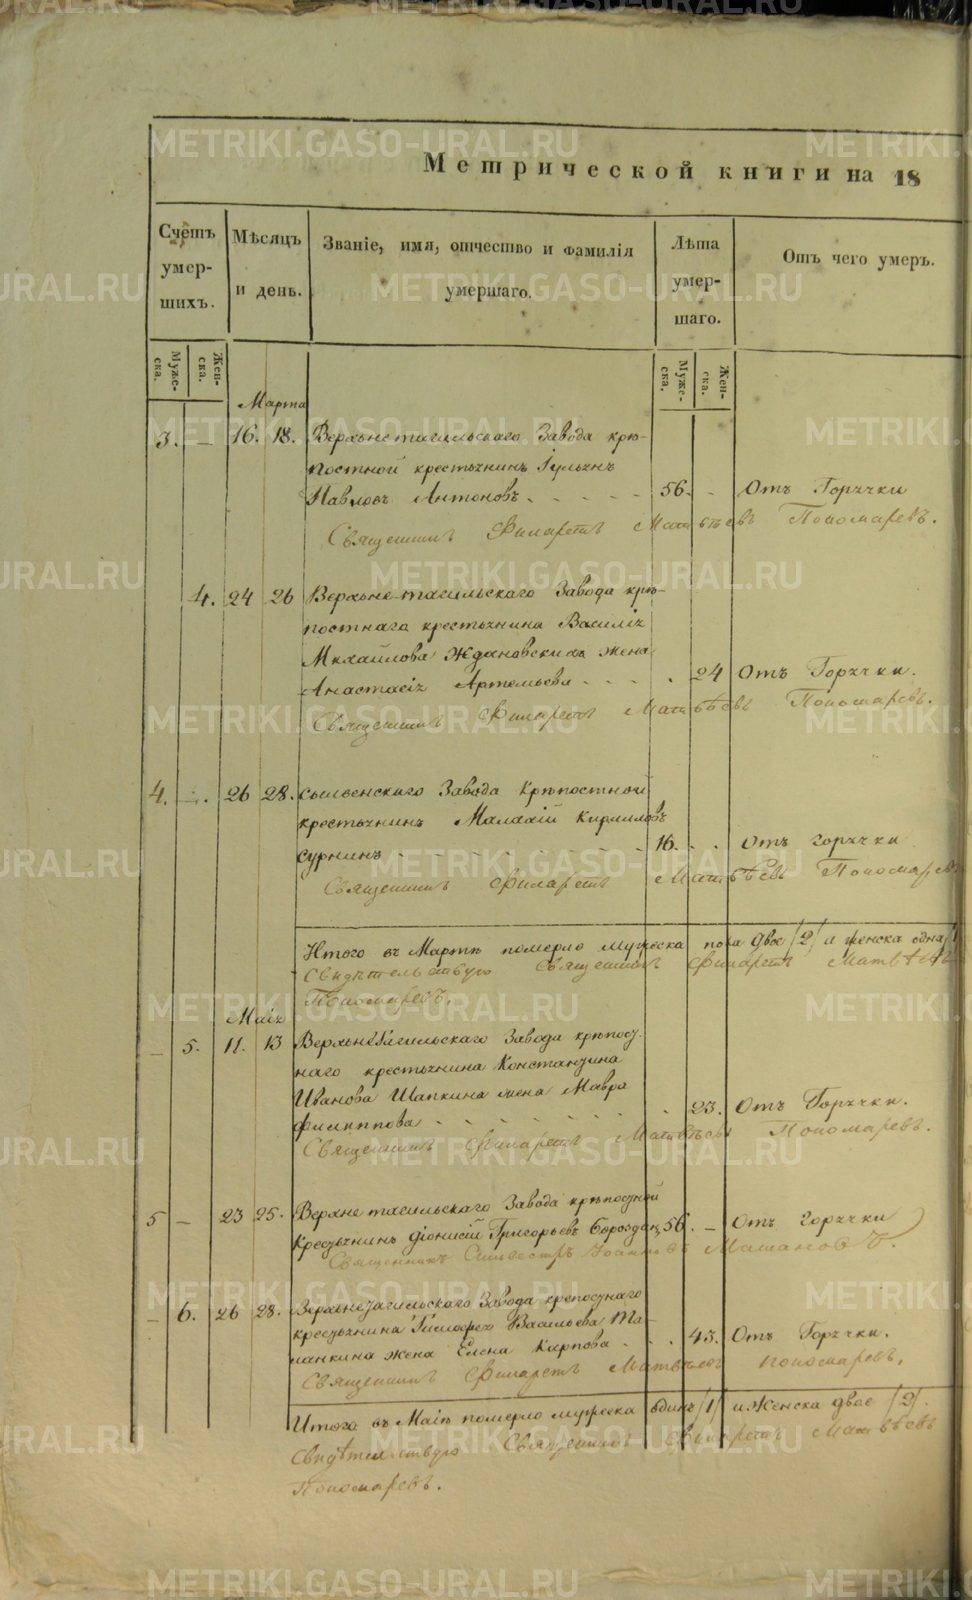 Метрической книги на 18
Счетъ умер- шихъ.
Мѣсяцъ и день.
Званіе, имя, отчество и фамилія умершаго.
Лѣта умер- шаго.
Отъ чего умеръ.
Муже- ска.
Жен- ска.
Муже- ска.
Жен- ска.
Марта
3. — 16. 18. Верхънетагильскаго Завода крѣ-
постной крестьянинъ Іульянъ
Павловъ Антоновъ 56. - Отъ Горячки
Священникъ Филаретъ Матвѣевъ Пономаревъ.
4. 24 26 Верхьне-тагильскаго Завода крѣ-
постнаго крестьянина Василія
Михайлова Ждановскихъ жена
Анастасія Артемьева 24 Отъ Горячки.
Священникъ Филаретъ Матвѣевъ Пономаревъ.
4. — 26 28. Сылвенскаго Завода Крѣпостной
крестьянинъ Малахій Кирилловъ
Сурнинъ 16. Отъ горячки
Священникъ Филаретъ Матвѣевъ Пономаревъ
Итого въ Мартѣ померло мужеска пола двое /2/ и женска одна /1
Свидѣтельствую Священникъ Филаретъ Матвѣевъ
Пономаревъ.
Маія
— 5. 11. 13 Верхьнетагильскаго Завода крѣпост-
наго крестьянина Константина
Иванова Шапкина жена Мавра
Филиппова 23. Отъ Горячки.
Священникъ Филаретъ Матвѣевъ Пономаревъ.
5 — 23 25. Верхне тагильскаго Завода крѣпостной
Крестьянинъ Діонисій Григорьевъ Бороздинъ 56. — Отъ горячки
Священникъ Сильвестръ Іоанновъ
— 6. 26 28. Верхьнетагильскаго Завода крепостнаго
крестьянина Тимофея Васильева Ма-
ланкина жена Елена Карпова 45. Отъ Горячки.
Священникъ Филаретъ Матвѣевъ Пономаревъ.
Итого въ Маіѣ померло мужеска одинъ /1/ и Женска двое /2/.
Свидѣтельствую Священникъ Филаретъ Матвѣевъ
Пономаревъ.
METRIKI.GASO-URAL.RU